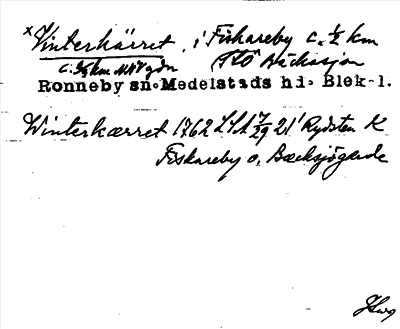 x Vinterkärret, i Fiskareby c. ½ km
c. ½ km NNV gdn (TtO Bäcksjön
Ronneby sn. Medelstads hd. Blek-l.
Winterkærret 1762 LSA 7/29 21 Rydsten K
Fiskareby o, Bæcksjögærde